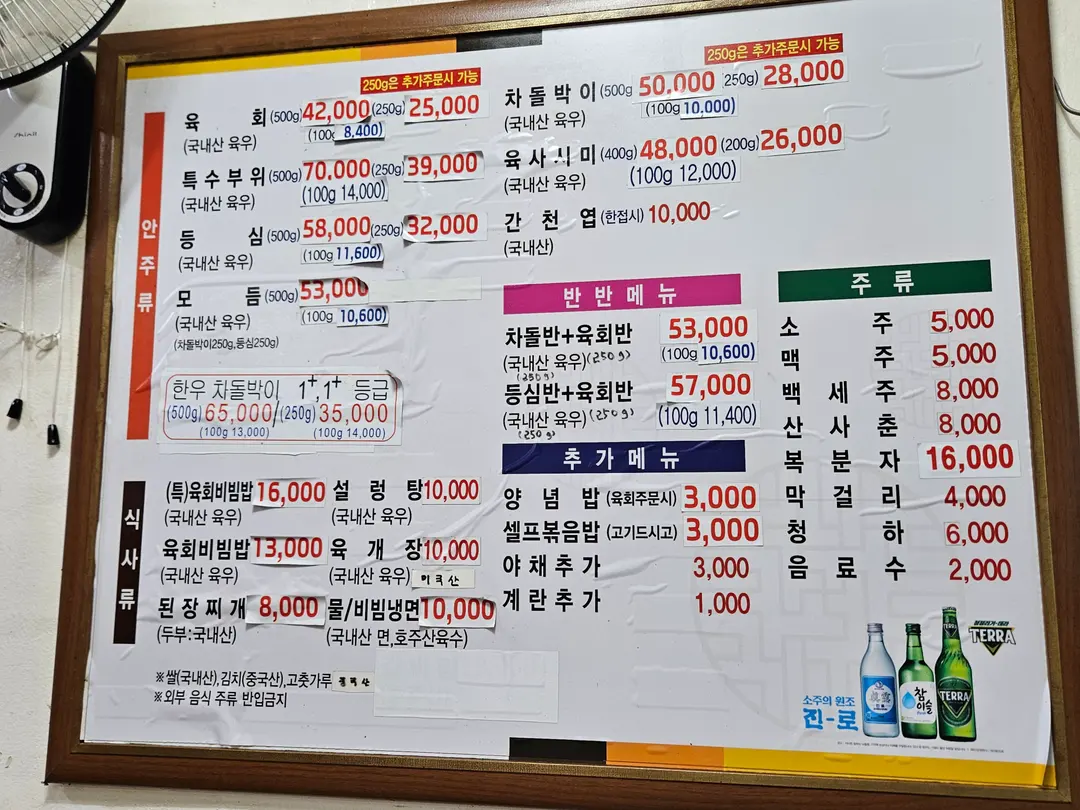 250g은 추가주문시 가능
안주류
육 회 (500g) 42,000 (250g) 25,000
(국내산 육우) (100g 8,400)
특수부위 (500g) 70,000 (250g) 39,000
(국내산 육우) (100g 14,000)
등 심 (500g) 58,000 (250g) 32,000
(국내산 육우) (100g 11,600)
모 듬 (500g) 53,000
(국내산 육우) (100g 10,600)
(차돌박이250g,등심250g)
한우 차돌박이 1+,1+ 등급
(500g) 65,000 / (250g) 35,000
(100g 13,000) (100g 14,000)
250g은 추가주문시 가능
차돌박이 (500g) 50.000 (250g) 28,000
(국내산 육우) (100g 10.000)
육사시미 (400g) 48,000 (200g) 26,000
(국내산 육우) (100g 12,000)
간 천 엽 (한접시) 10,000
(국내산)
반반메뉴
차돌반+육회반 53,000
(국내산 육우) (250g) (100g 10,600)
(250g)
등심반+육회반 57,000
(국내산 육우) (250g) (100g 11,400)
(250g)
추가메뉴
양 념 밥 (육회주문시) 3,000
셀프볶음밥 (고기드시고) 3,000
야채추가 3,000
계란추가 1,000
주류
소 주 5,000
맥 주 5,000
백 세 주 8,000
산 사 춘 8,000
복 분 자 16,000
막 걸 리 4,000
청 하 6,000
음 료 수 2,000
식사류
(특)육회비빔밥 16,000 설 렁 탕 10,000
(국내산 육우) (국내산 육우)
육회비빔밥 13,000 육 개 장 10,000
(국내산 육우) (국내산 육우) 미국산
된장찌개 8,000 물/비빔냉면 10,000
(두부:국내산) (국내산 면,호주산육수)
※ 쌀(국내산),김치(중국산),고춧가루 중국산
※ 외부 음식 주류 반입금지
소주의 원조
진-로
참이슬
TERRA
TERRA
TERRA